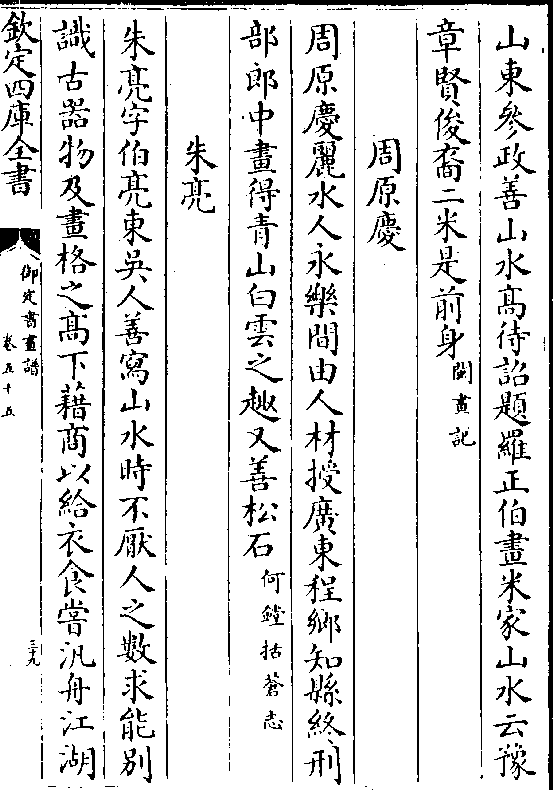 山東參政善山水髙待詔題羅正伯畫米家山水云豫
章賢俊裔二米是前身閩畫記
周原慶
周原慶麗水人永樂間由人材授廣東程鄉知縣終刑
部郎中畫得青山白雲之趣又善松石何鏜括蒼志
朱亮
朱亮字伯亮東吳人善寫山水時不厭人之數求能別
識古器物及畫格之髙下藉商以給衣食嘗汎舟江湖
欽定四庫全書
御定書畫譜
卷五十五
三九